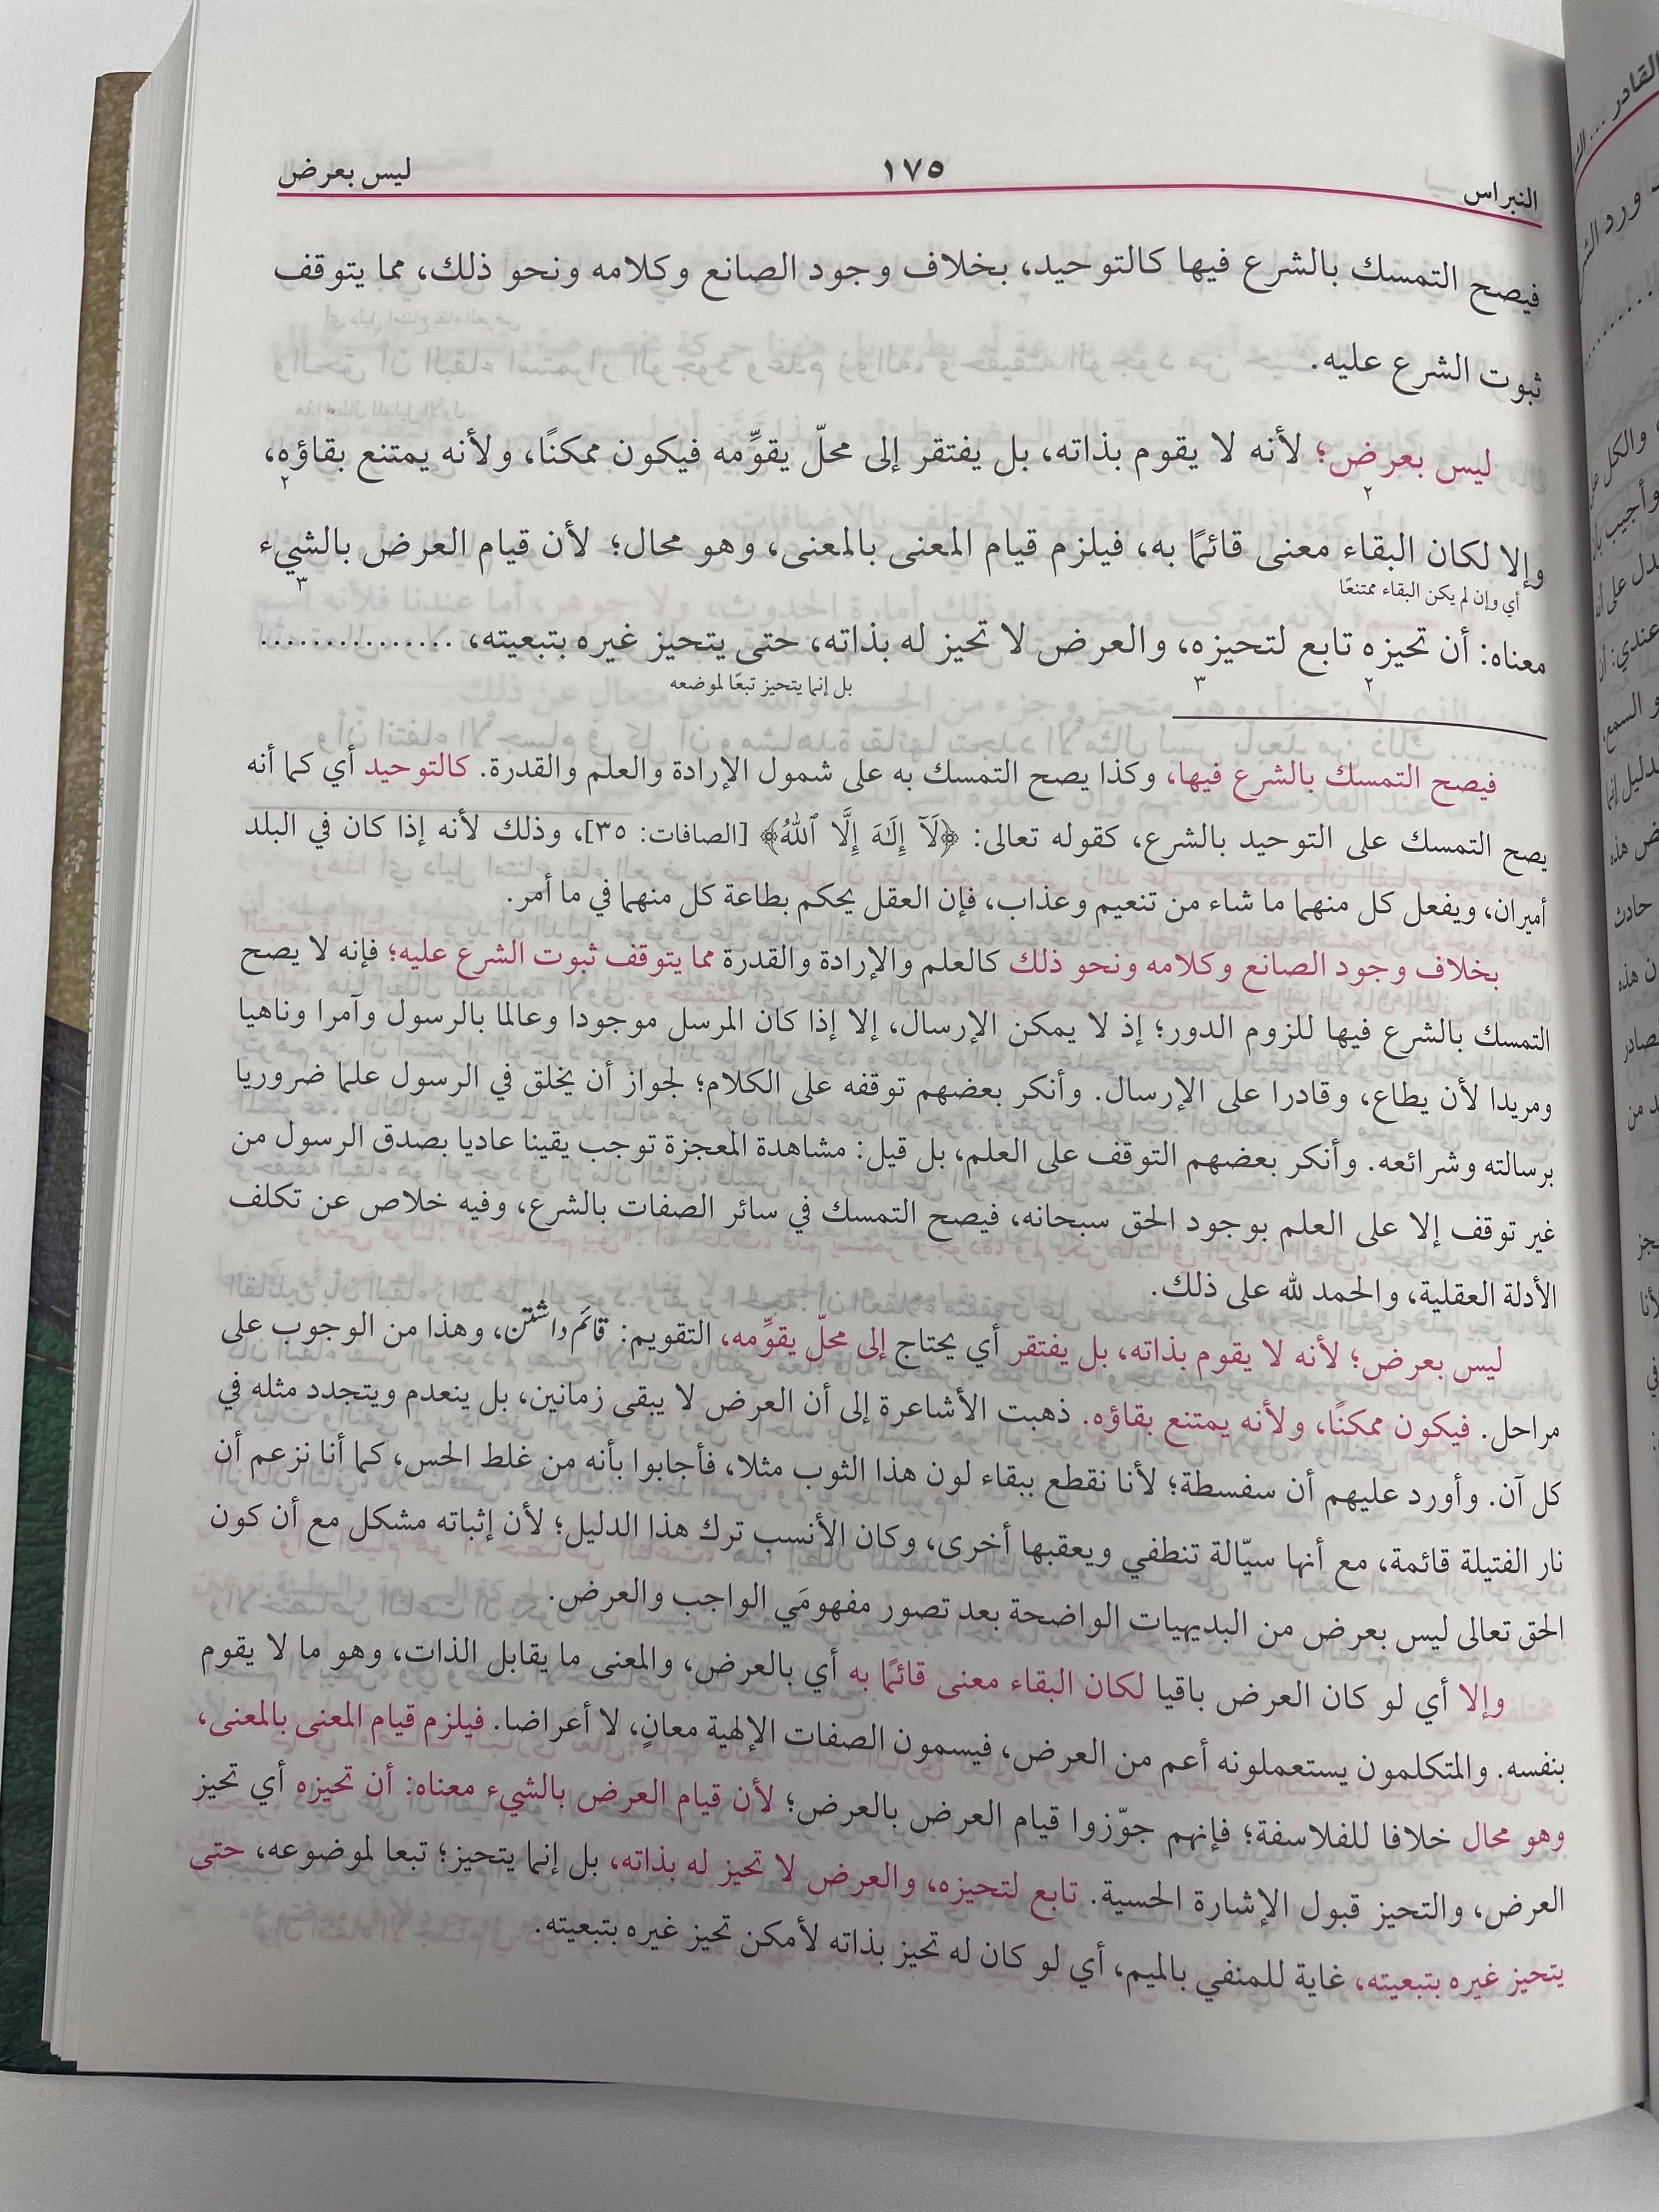 النبراس ١٧٥ ليس بعرض
فيصح التمسك بالشرع فيها كالتوحيد، بخلاف وجود الصانع وكلامه ونحو ذلك، مما يتوقف
ثبوت الشرع عليه.
ليس بعرض؛ لأنه لا يقوم بذاته، بل يفتقر إلى محلّ يقوِّمه فيكون ممكنًا، ولأنه يمتنع بقاؤه،
٢ ٢
وإلا لكان البقاء معنى قائمًا به، فيلزم قيام المعنى بالمعنى، وهو محال؛ لأن قيام العرض بالشيء
أي وإن لم يكن البقاء ممتنعًا ٣
معناه: أن تحيزه تابع لتحيزه، والعرض لا تحيز له بذاته، حتى يتحيز غيره بتبعيته، ................
٢ ٣ بل إنما يتحيز تبعًا لموضعه
فيصح التمسك بالشرع فيها، وكذا يصح التمسك به على شمول الإرادة والعلم والقدرة. كالتوحيد أي كما أنه
يصح التمسك على التوحيد بالشرع، كقوله تعالى: ﴿لَآ إِلَٰهَ إِلَّا ٱللَّهُ﴾ [الصافات: ٣٥]، وذلك لأنه إذا كان في البلد
أميران، ويفعل كل منهما ما شاء من تنعيم وعذاب، فإن العقل يحكم بطاعة كل منهما في ما أمر.
بخلاف وجود الصانع وكلامه ونحو ذلك كالعلم والإرادة والقدرة مما يتوقف ثبوت الشرع عليه؛ فإنه لا يصح
التمسك بالشرع فيها للزوم الدور؛ إذ لا يمكن الإرسال، إلا إذا كان المرسل موجودا وعالما بالرسول وآمرا وناهيا
ومريدا لأن يطاع، وقادرا على الإرسال. وأنكر بعضهم توقفه على الكلام؛ لجواز أن يخلق في الرسول علما ضروريا
برسالته وشرائعه. وأنكر بعضهم التوقف على العلم، بل قيل: مشاهدة المعجزة توجب يقينا عاديا بصدق الرسول من
غير توقف إلا على العلم بوجود الحق سبحانه، فيصح التمسك في سائر الصفات بالشرع، وفيه خلاص عن تكلف
الأدلة العقلية، والحمد لله على ذلك.
ليس بعرض؛ لأنه لا يقوم بذاته، بل يفتقر أي يحتاج إلى محلّ يقوِّمه، التقويم: قائم داشتن، وهذا من الوجوب على
مراحل. فيكون ممكنًا، ولأنه يمتنع بقاؤه. ذهبت الأشاعرة إلى أن العرض لا يبقى زمانين، بل ينعدم ويتجدد مثله في
كل آن. وأورد عليهم أن سفسطة؛ لأنا نقطع ببقاء لون هذا الثوب مثلا، فأجابوا بأنه من غلط الحس، كما أنا نزعم أن
نار الفتيلة قائمة، مع أنها سيّالة تنطفي ويعقبها أخرى، وكان الأنسب ترك هذا الدليل؛ لأن إثباته مشكل مع أن كون
الحق تعالى ليس بعرض من البديهيات الواضحة بعد تصور مفهومَي الواجب والعرض.
وإلا أي لو كان العرض باقيا لكان البقاء معنى قائمًا به أي بالعرض، والمعنى ما يقابل الذات، وهو ما لا يقوم
بنفسه. والمتكلمون يستعملونه أعم من العرض، فيسمون الصفات الإلهية معانٍ، لا أعراضا. فيلزم قيام المعنى بالمعنى،
وهو محال خلافا للفلاسفة؛ فإنهم جوّزوا قيام العرض بالعرض؛ لأن قيام العرض بالشيء معناه: أن تحيزه أي تحيز
العرض، والتحيز قبول الإشارة الحسية. تابع لتحيزه، والعرض لا تحيز له بذاته، بل إنما يتحيز؛ تبعا لموضوعه، حتى
يتحيز غيره بتبعيته، غاية للمنفي بالميم، أي لو كان له تحيز بذاته لأمكن تحيز غيره بتبعيته.